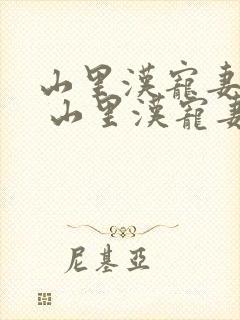 山里漢寵妻
山里漢寵妻
尼基亞